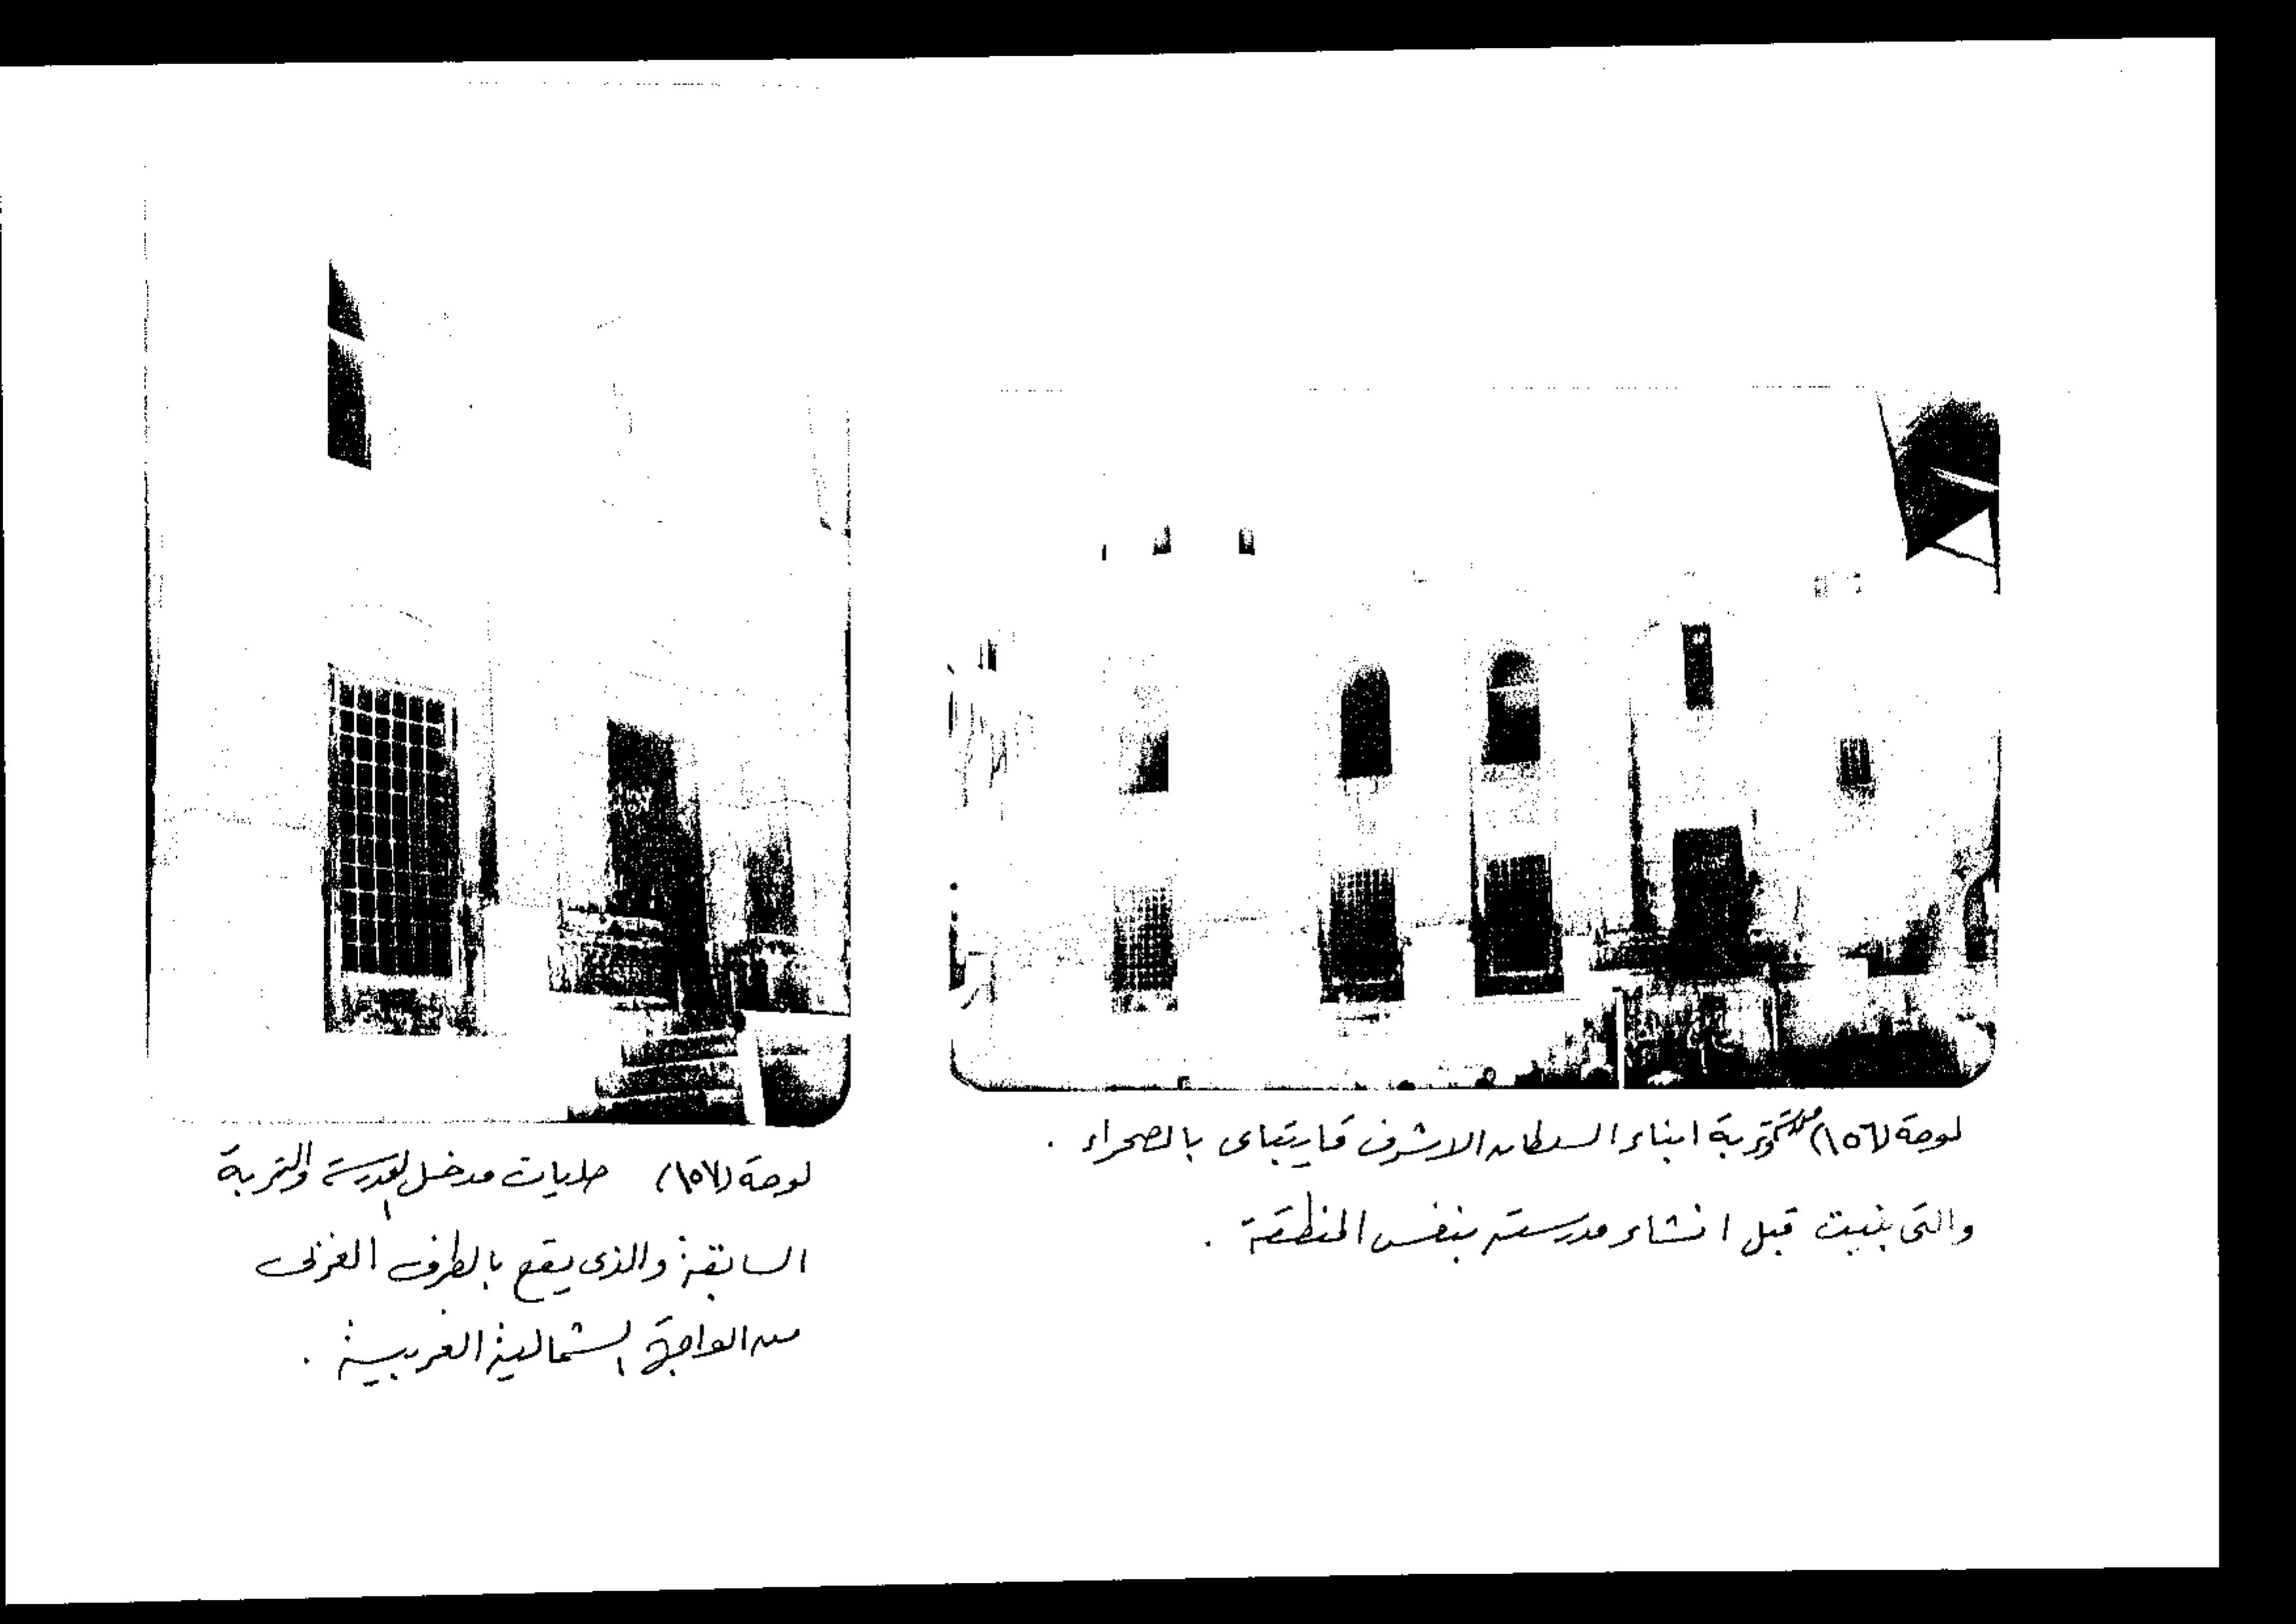 لوحة (١٥٦) مدرسة وتربة ابناء السلطان الاشرف قايتباى بالصحراء .
والتى بنيت قبل انشاء مدرسته بنفس المنطقة .
لوحة (١٥٧) حليات مدخل المدرسة والتربة
السابقة والذى يقع بالطرف الغربى
من الواجهة الشمالية الغربية .